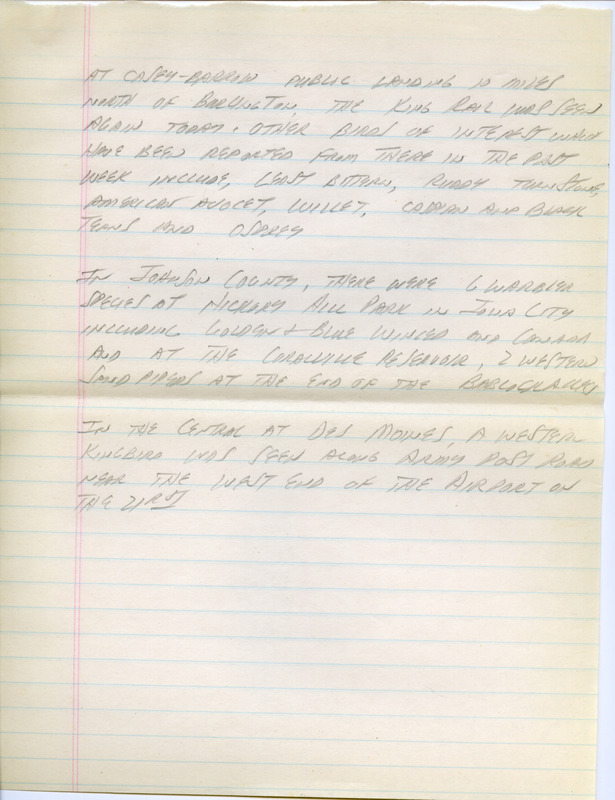 AT CASEY-BARROW PUBLIC LANDING 10 MILES
NORTH OF BURLINGTON, THE KING RAIL WAS SEEN
AGAIN TODAY. OTHER BIRDS OF INTEREST WHICH
HAVE BEEN REPORTED FROM THERE IN THE PAST
WEEK INCLUDE, LEAST BITTERN, RUDDY TURNSTONE,
AMERICAN AVOCET, WILLET, CASPIAN AND BLACK
TERNS AND OSPREY
IN JOHNSON COUNTY, THERE WERE 6 WARBLER
SPECIES AT HICKORY HILL PARK IN IOWA CITY
INCLUDING GOLDEN & BLUE WINGED AND CANADA
AND AT THE CORALVILLE RESERVOIR, 2 WESTERN
SANDPIPERS AT THE END OF THE
IN THE CENTRAL AT DES MOINES, A WESTERN
KINGBIRD WAS SEEN ALONG ARMY POST ROAD
NEAR THE WEST END OF THE AIRPORT ON
THE 21RST